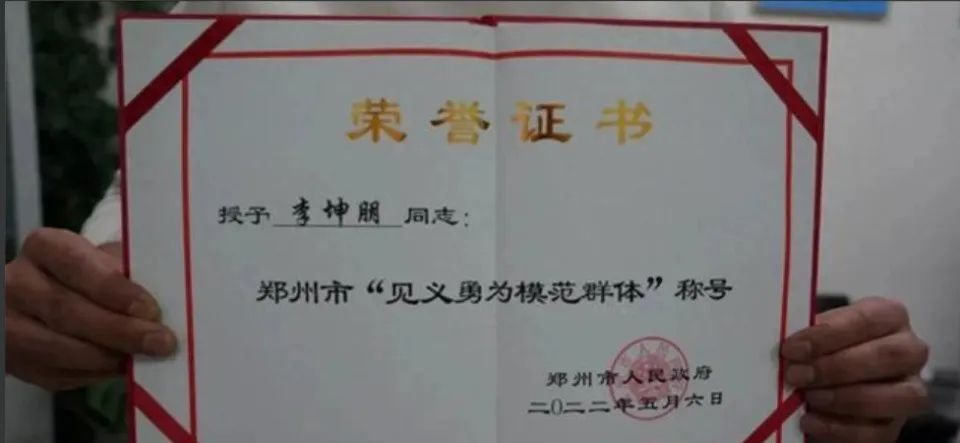 荣誉证书
授予 李坤朋 同志：
郑州市“见义勇为模范群体”称号
郑州市人民政府
二〇二二年五月六日